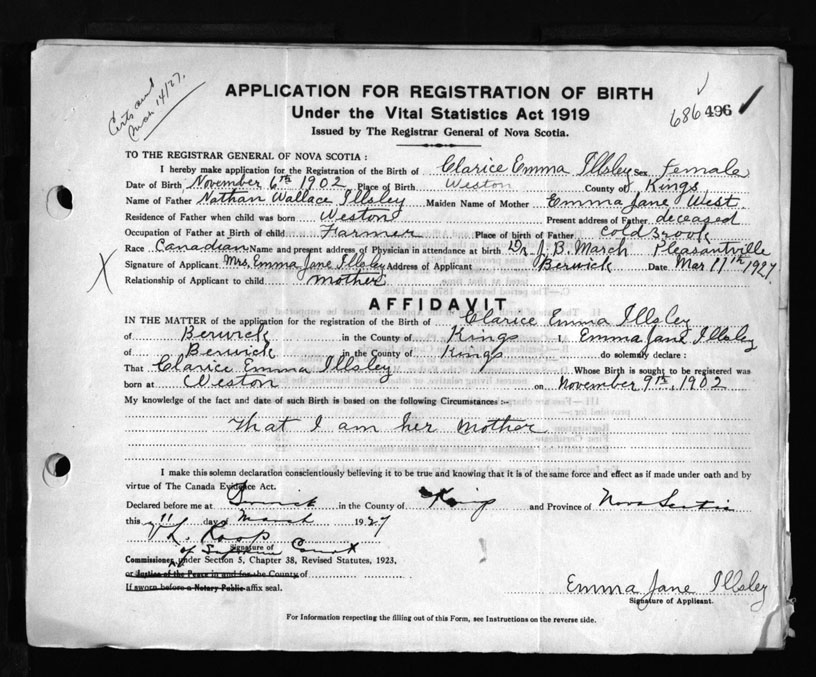 Certs and
Mar 14/27.
APPLICATION FOR REGISTRATION OF BIRTH
Under the Vital Statistics Act 1919
686 496
Issued by The Registrar General of Nova Scotia.
TO THE REGISTRAR GENERAL OF NOVA SCOTIA :
I hereby make application for the Registration of the Birth of Clarice Emma Illsley Sex Female
Date of Birth November 6th 1902 Place of Birth Weston County of Kings
Name of Father Nathan Wallace Illsley Maiden Name of Mother Emma Jane West
Residence of Father when child was born Weston Present address of Father deceased
Occupation of Father at Birth of child Farmer Place of birth of Father Cold Brook
Race Canadian Name and present address of Physician in attendance at birth Dr. J. B. March Pleasantville
Signature of Applicant Mrs. Emma Jane Illsley Address of Applicant Berwick Date Mar 11th 1927.
Relationship of Applicant to child mother
X
AFFIDAVIT
IN THE MATTER of the application for the registration of the Birth of Clarice Emma Illsley
of Berwick in the County of Kings I, Emma Jane Illsley
of Berwick in the County of Kings do solemnly declare :
That Clarice Emma Illsley Whose Birth is sought to be registered was
born at Weston on November 9th, 1902
My knowledge of the fact and date of such Birth is based on the following Circumstances :-
That I am her mother
I make this solemn declaration conscientiously believing it to be true and knowing that it is of the same force and effect as if made under oath and by
virtue of The Canada Evidence Act.
Declared before me at Berwick in the County of Kings and Province of Nova Scotia
this 11 day March 1927
L. Koop
Signature of
of Supreme Court
Commissioner, under Section 5, Chapter 38, Revised Statutes, 1923,
or Justice of the Peace in and for the County of
If sworn before a Notary Public affix seal.
Emma Jane Illsley
Signature of Applicant.
For Information respecting the filling out of this Form, see Instructions on the reverse side.